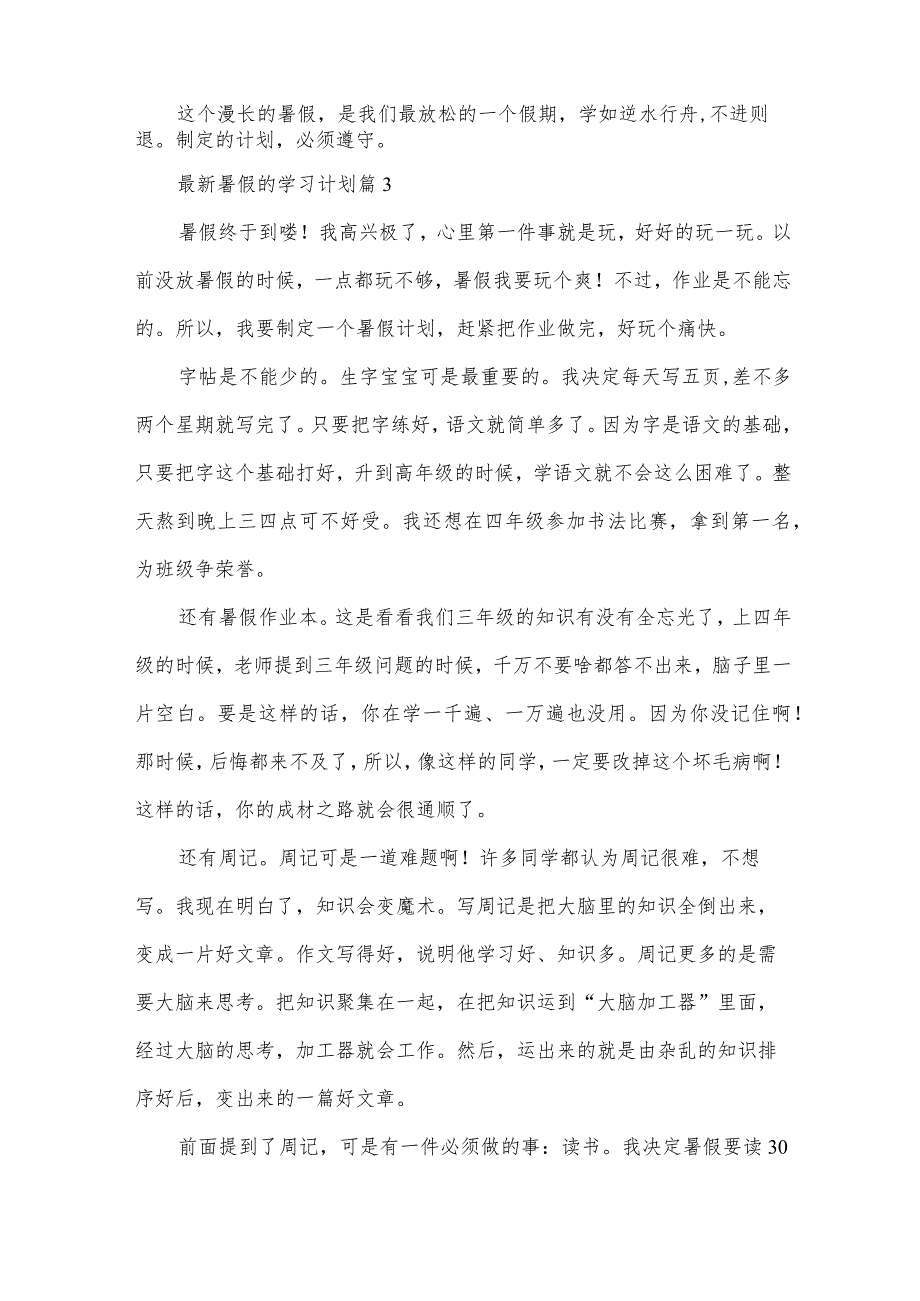 这个漫长的暑假，是我们最放松的一个假期，学如逆水行舟,不进则
退。制定的计划，必须遵守。
最新暑假的学习计划篇 3
暑假终于到喽！我高兴极了，心里第一件事就是玩，好好的玩一玩。以
前没放暑假的时候，一点都玩不够，暑假我要玩个爽！不过，作业是不能忘
的。所以，我要制定一个暑假计划，赶紧把作业做完，好玩个痛快。
字帖是不能少的。生字宝宝可是最重要的。我决定每天写五页,差不多
两个星期就写完了。只要把字练好，语文就简单多了。因为字是语文的基础，
只要把字这个基础打好，升到高年级的时候，学语文就不会这么困难了。整
天熬到晚上三四点可不好受。我还想在四年级参加书法比赛，拿到第一名，
为班级争荣誉。
还有暑假作业本。这是看看我们三年级的知识有没有全忘光了，上四年
级的时候，老师提到三年级问题的时候，千万不要啥都答不出来，脑子里一
片空白。要是这样的话，你在学一千遍、一万遍也没用。因为你没记住啊！
那时候，后悔都来不及了，所以，像这样的同学，一定要改掉这个坏毛病啊！
这样的话，你的成材之路就会很通顺了。
还有周记。周记可是一道难题啊！许多同学都认为周记很难，不想
写。我现在明白了，知识会变魔术。写周记是把大脑里的知识全倒出来，
变成一片好文章。作文写得好，说明他学习好、知识多。周记更多的是需
要大脑来思考。把知识聚集在一起，在把知识运到“大脑加工器”里面，
经过大脑的思考，加工器就会工作。然后，运出来的就是由杂乱的知识排
序好后，变出来的一篇好文章。
前面提到了周记，可是有一件必须做的事：读书。我决定暑假要读 30